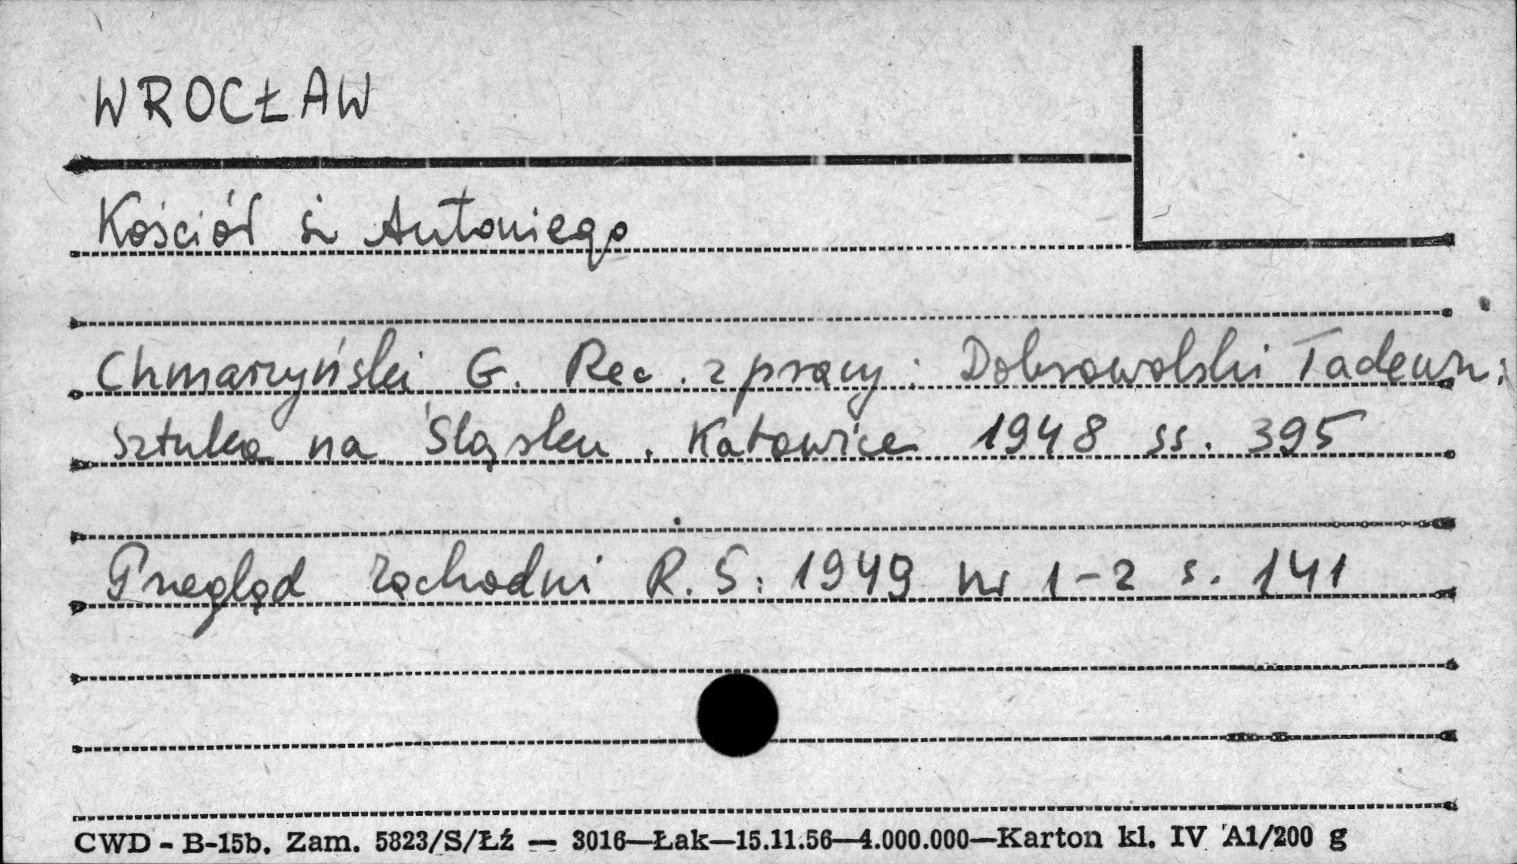 WROCŁAW
Kościół św Antoniego
Chmarzyński G. Rec. z pracy: Dobrowolski Tadeusz:
Sztuka na Śląsku. Katowice 1948 ss. 395
Przegląd Zachodni R. 5: 1949 nr 1-2 s. 141
CWD - B-15b. Zam. 5823/S/Łź — 3016—Łak—15.11.56—4.000.000—Karton kl. IV A1/200 g